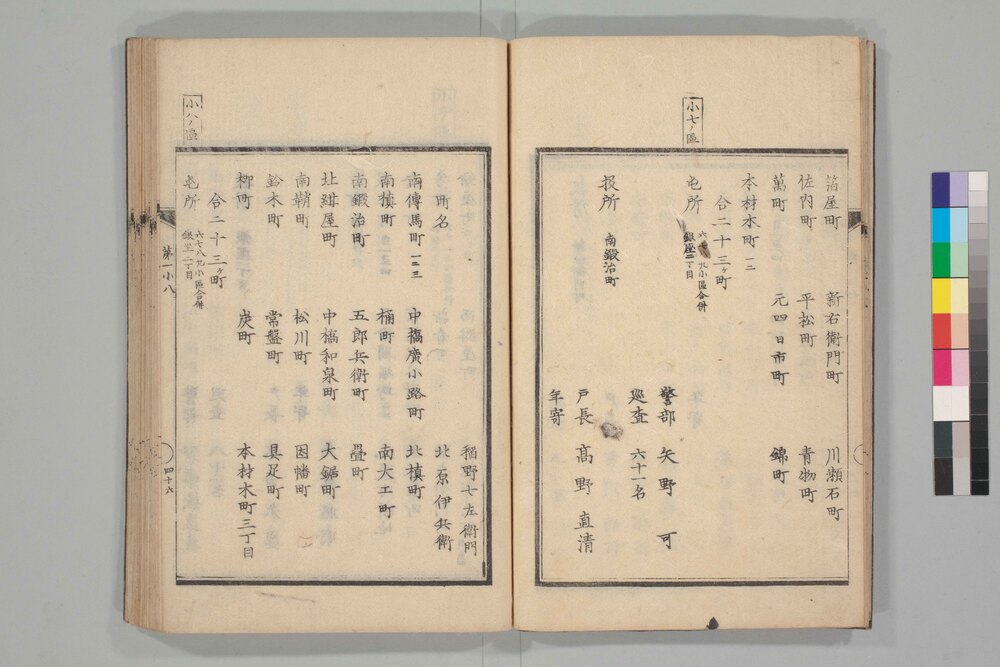 小七ノ區
箔屋町 新右衛門町 川瀬石町
佐内町 平松町 青物町
萬町 元四日市町 錦町
本材木町 一二
合二十三ヶ町
屯所 六七 九小區合併
銀座二丁目
警部 矢野 可
巡査 六十一名
扱所 南鍛治町
戸長 髙野直清
年寄
稲野七左衛門
北原伊兵衛
小八ノ區
町名
南傳馬町 一二三 中橋廣小路町 北槙町
南槙町 桶町 南大工町
南鍛治町 五郎兵衛町 疊町
北紺屋町 中橋和泉町 大鋸町
南鞘町 松川町 因幡町
鈴木町 常盤町 具足町
柳町 炭町 本材木町三丁目
合二十三ヶ町
屯所 六七八九小區合併
銀座二丁目
第一小八
四十六